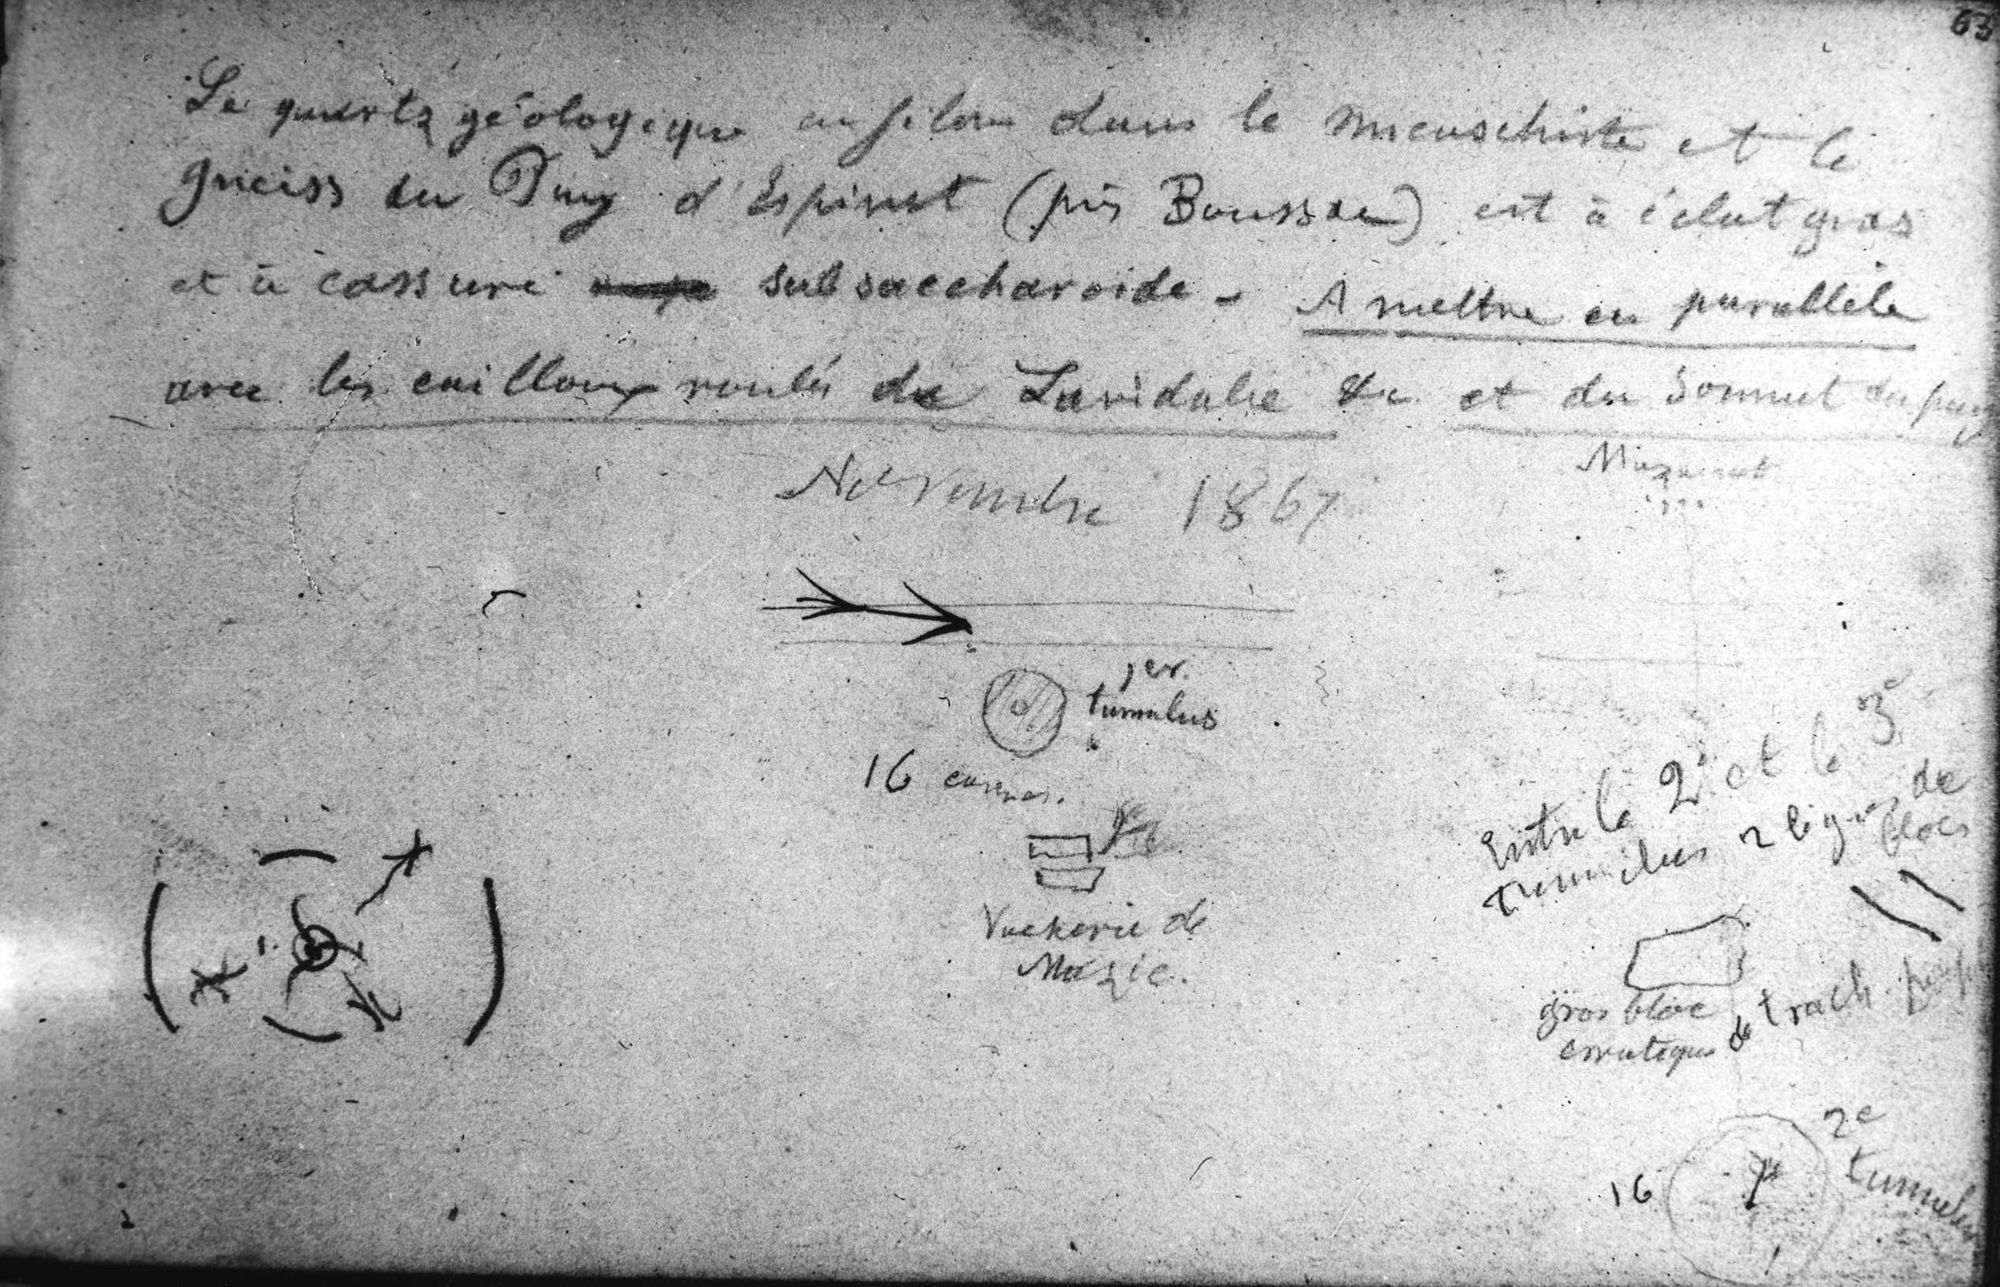 63
Le quartz géologique en filon dans le micaschiste et le
gneiss du Puy d'Espinet (près Boussac) est à éclat gras
et à cassure subsaccharoïde - A mettre en parallèle
avec les cailloux roulés de Lavidalie &c et du Sommet du puy
Novembre 1867
1er.
tumulus
16
Vacherie de
Mazic.
Entre le 2e et le 3e
tumulus 2 lignes de
blocs
gros bloc
erratique de trach.
2e
tumulus
16